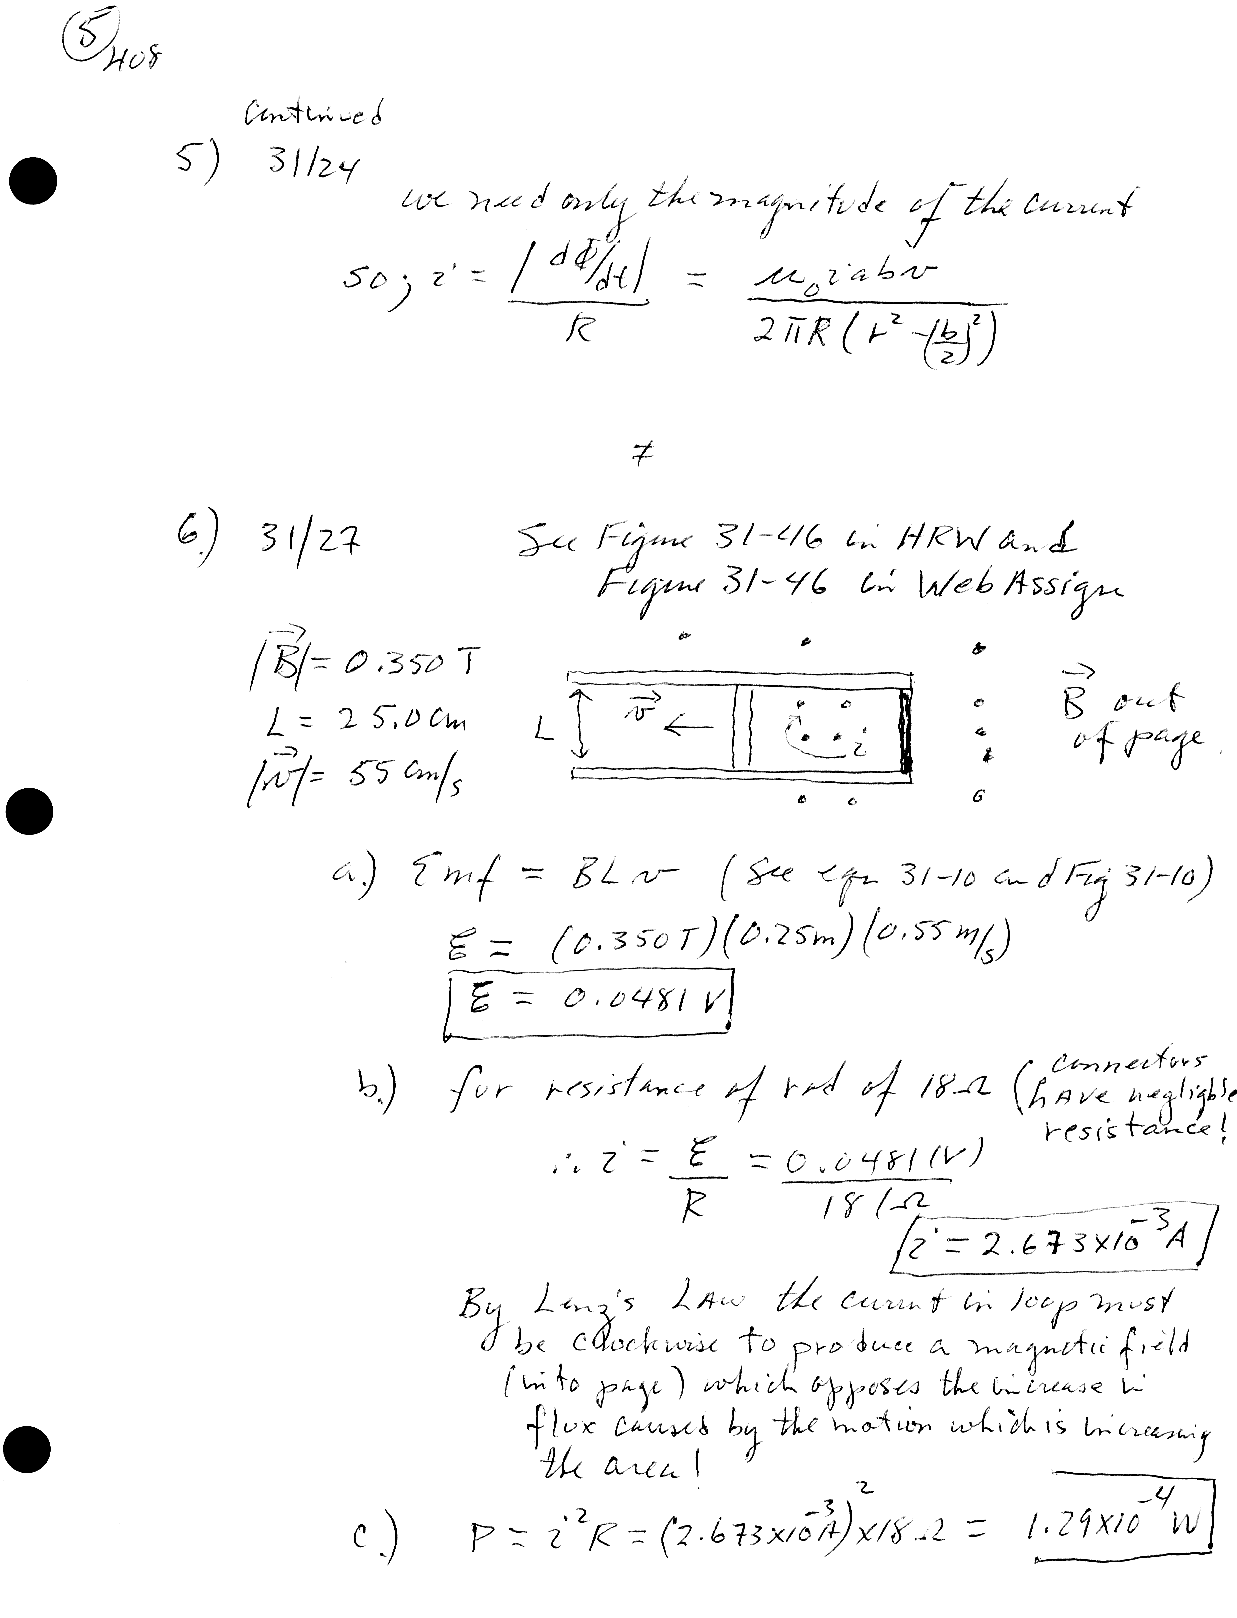 5/408
Continued
5) 31/24
we need only the magnitude of the current
so; i = |dΦ/dt| / R = μ₀iabv / 2πR(r² - (b/2)²)
≠
6.) 31/27 See Figure 31-46 in HRW and
Figure 31-46 in WebAssign
|B⃗| = 0.350 T
L = 25.0 cm
|v⃗| = 55 cm/s
L v⃗ ← i
B⃗ out
of page
a.) Emf = BLv (See eqn 31-10 and Fig 31-10)
ℰ = (0.350T)(0.25m)(0.55 m/s)
ℰ = 0.0481 V
b.) for resistance of rod of 18Ω (connectors
have negligble
resistance!
∴ i = ℰ/R = 0.0481(V) / 18 (Ω
i = 2.673x10⁻³A
By Lenz's LAW the current in loop must
be clockwise to produce a magnetic field
(into page) which opposes the increase in
flux caused by the motion which is increasing
the area!
c.) P = i²R = (2.673x10⁻³A)² x18Ω = 1.29x10⁻⁴ W